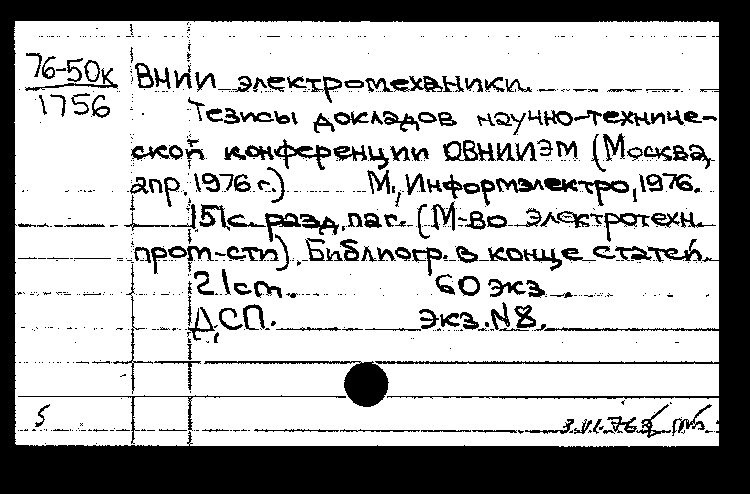 76-50к
1756
ВНИИ электромеханики.
Тезисы докладов научно-техниче-
ской конференции ОВНИИЭМ (Москва,
апр. 1976 г.) М., Информэлектро, 1976.
151 с. разд. паг. (М-во электротехн.
пром-сти). Библиогр. в конце статей.
21 см. 60 экз.
ДСП. Экз. N8.
5
3.VI.76